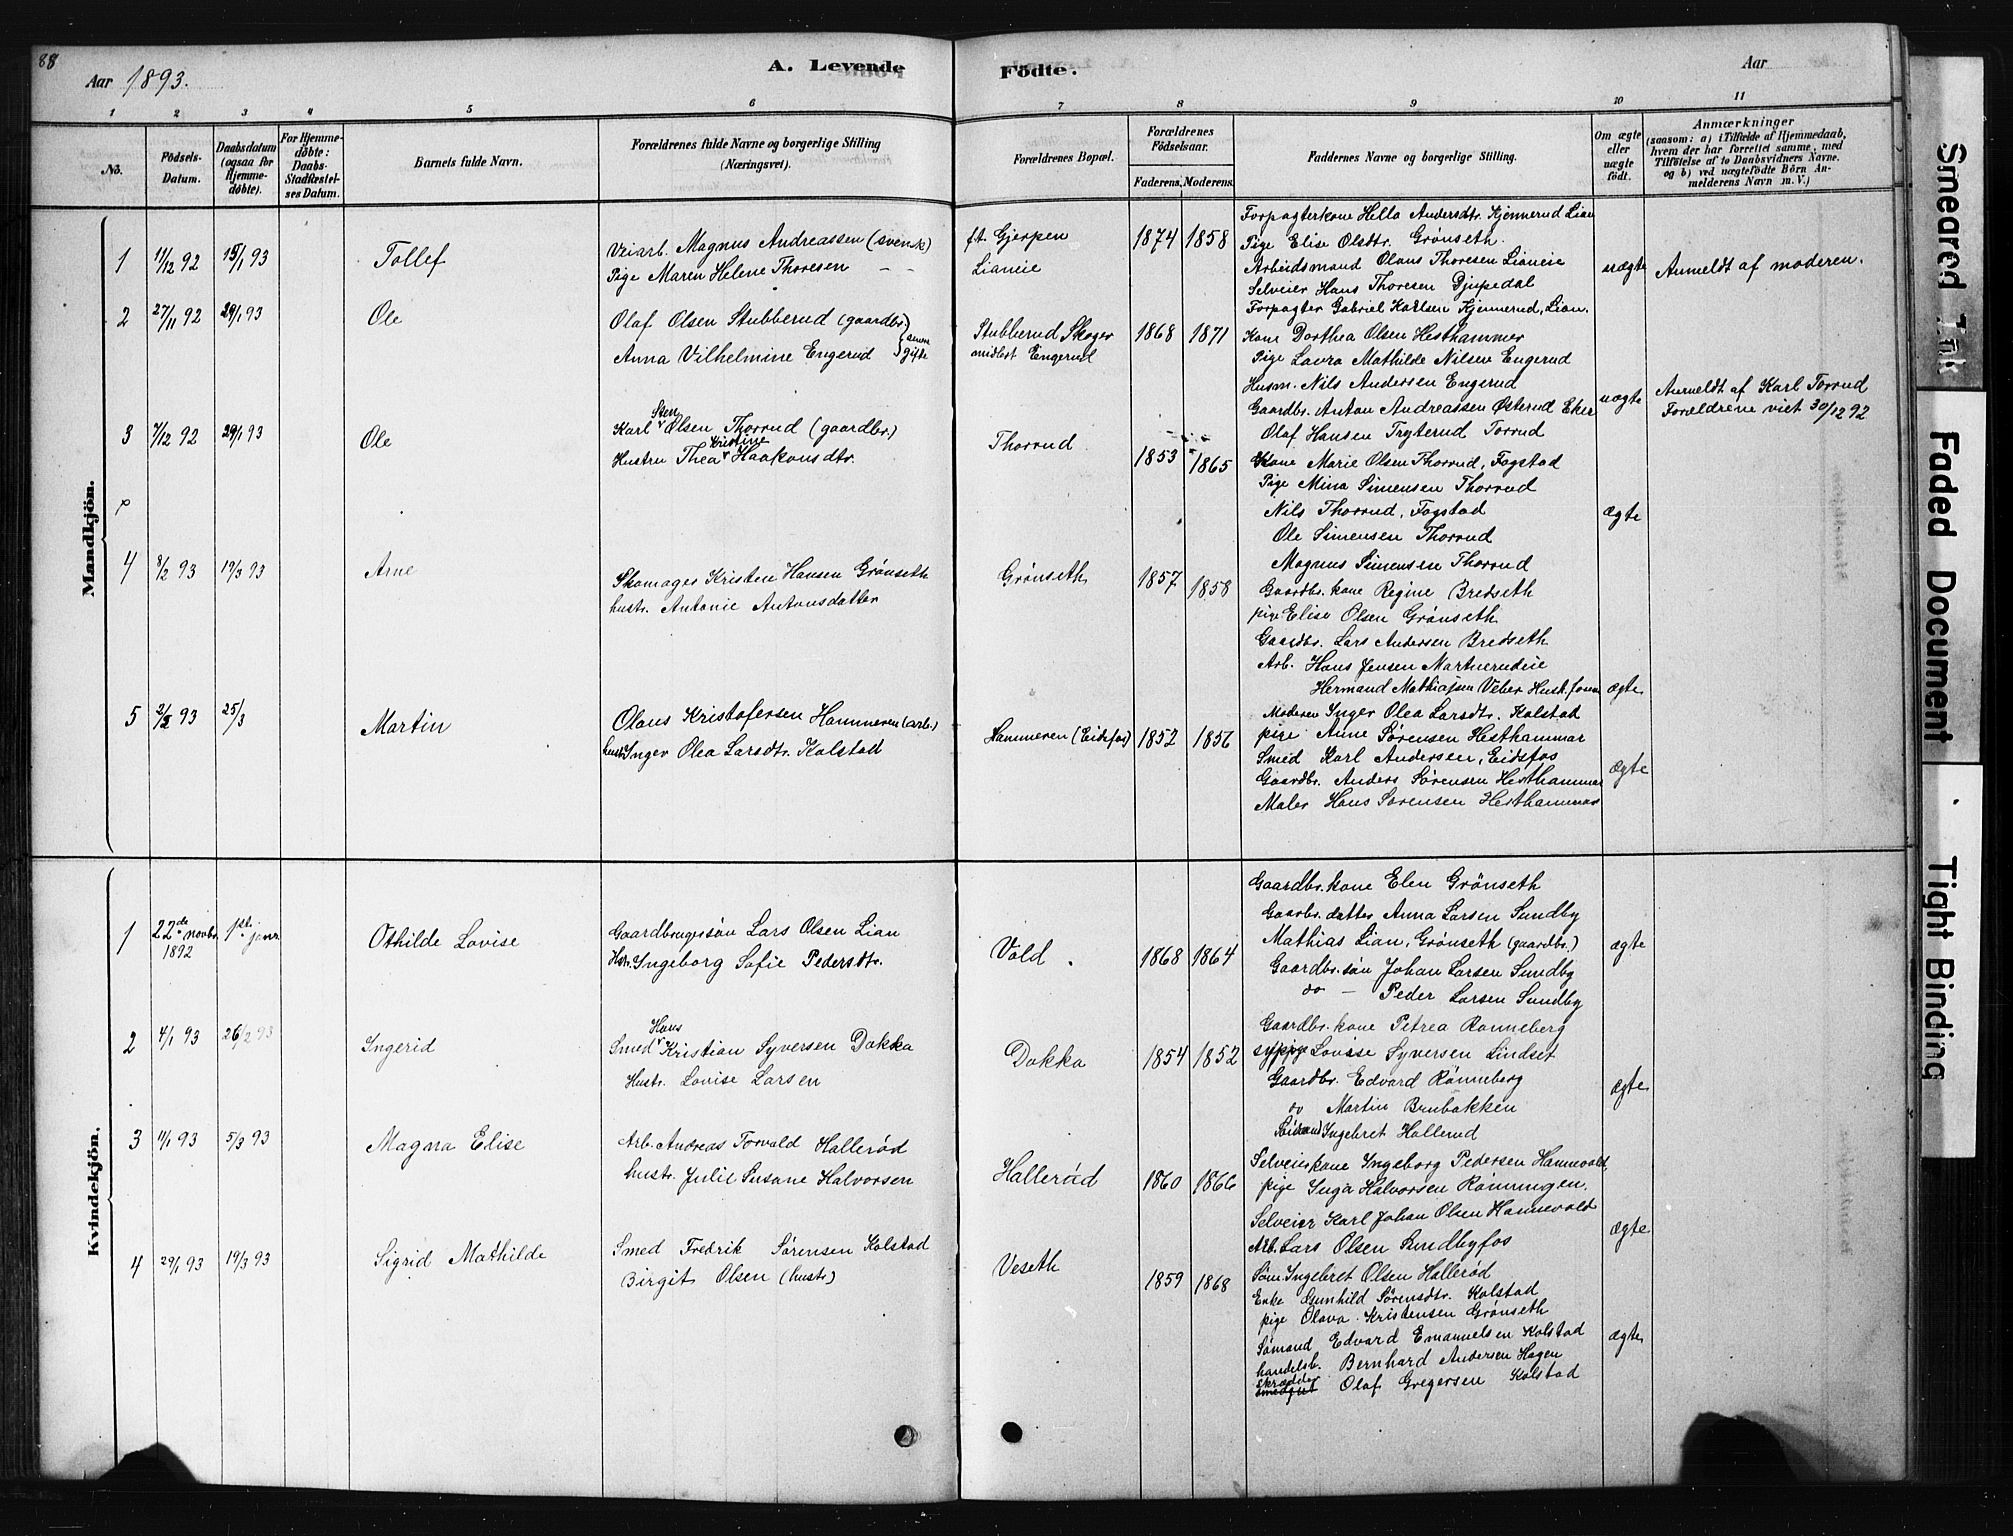 88
Aar 1893.
A. Levende
Födte.
Aar
1 2 3 4 5 6 7 8 9 10 11
No.
Födsels-
Datum.
Daabsdatum
(ogsaa for
Hjemme-
døbte).
For Hjemme-
döbte:
Daabs-
Stadfæstel-
ses Datum.
Barnets fulde Navn.
Forældrenes fulde Navne og borgerlige Stilling
(Næringsvei).
Forældrenes Bopæl.
Forældrenes
Födselsaar.
Faderens. Moderens.
Faddernes Navne og borgerlige Stilling.
Om ægte
eller
uægte
födt.
Anmærkninger
(saasom: a) i Tilfælde af Hjemmedaab,
hvem der har forrettet samme, med
Tilföielse af to Daabsvidners Navne.
og b) ved uægtefödte Börn An-
melderens Navn m. V.)
Mandkjön.
1 11/12 92 15/1 93 Tollef
Veiarb. Magnus Andreassen (svensk)
Pige Maren Helene Thoresen - -
ft. Gjerpen
Lianeie
1874 1858
Forpagterkone Hella Andersdtr. Kjennerud Lian
Pige Elise Olsdtr. Grönseth.
Arbeidsmand Olaus Thoresen Lianeie
Selveier Hans Thoresen Djupedal
Forpagter Gabriel Karlsen Kjennerud, Lian.
uægte
Anmeldt af moderen.
2 27/11 92 29/1 93 Ole
Olaf Olsen Stubberud (gaardbr.)
Anna Vilhelmine Engerud
gifte
Stubberud Skoger
midlert Engerud
1868 1871
Kone Dorthea Olsen Hesthammer
Pige Laura Mathilde Nilsen Engerud
Husm. Nils Andersen Engerud
Gaardbr. Anton Andreassen Østerud Eker
Olaf Hansen Tryterud Torrud
uægte
Anmeldt af Karl Torrud
Forældrene viet 30/12 92
3 7/12 92 29/1 93 Ole
Sten
Karl Olsen Thorrud (gaardbr.)
Kristine
Hustru Thea Haakonsdtr.
Thorrud
1853 1865
Kone Marie Olsen Thorrud, Fogstad
Pige Mina Simensen Thorrud
Nils Thorrud, Fogstad
Ole Simensen Thorrud
Magnus Simensen Thorrud
ægte
4 8/2 93 19/3 93 Arne
Skomager Kristen Hansen Grönseth
hustr. Antonie Antonsdatter
Grönseth
1857 1858
Gaardbr. kone Regine Bredseth
pige Elise Olsen Grönseth
Gaardbr. Lars Andersen Bredseth
Arb. Hans Jensen Martnerudeie
Hermand Mathiasen Veber
ægte
5 2/2 93 25/3 Martin
Olaus Kristofersen Hammeren (arb.)
hustr. Inger Olea Larsdtr. Kolstad
Hammeren (Eidsfos)
1852 1856
Moderen Inger Olea Larsdtr. Kolstad
pige Anne Sørensen Hesthammar
Smed Karl Andersen, Eidsfos
Gaardbr. Anders Sørensen Hesthammar
Maler Hans Sørensen Hesthammar
ægte
Kvindekjön.
1 22de novbr. 1892 1ste janr. Othilde Lovise
Gaardbrugersön Lars Olsen Lian
Hstr. Ingeborg Sofie Pedersdtr.
Vold.
1868 1864
Gaardbr. kone Elen Grönseth
Gaarbr. datter Anna Larsen Sundby
Mathias Lian, Grönseth (gaardbr.)
Gaardbr. sön Johan Larsen Sundby
do - Peder Larsen Sundby
ægte
2 4/1 93 26/2 93 Ingerid
Hans
Smed Kristian Syversen Dokka
Hustr. Lovise Larsen
Dokka
1854 1852
Gaardbr. kone Petrea Ronneberg
sypige Lovise Syversen Lindset
Gaardbr. Edvard Rönneberg
do Martin Brubakken
Ingebret Hallerud
ægte
3 4/1 93 5/3 93 Magna Elise
Arb. Andreas Torvald Halleröd
hustr. Julie Susane Halvorsen
Halleröd
1860 1866
Selveierkone Ingeborg Pedersen Hannevold
pige Inga Halvorsen Rönningen.
Selveier Karl Johan Olsen Hannevold
Arb. Lars Olsen Sundbyfos
Sön Ingebret Olsen Halleröd
ægte
4 29/1 93 19/3 93 Sigrid Mathilde
Smed Fredrik Sörensen Kolstad
Birgit Olsen (hustr.)
Veseth
1859 1868
Enke Gunhild Sörensdtr. Kolstad
pige Olava Kristensen Grönseth
Sömand Edvard Emanuelsen Kolstad
handelsb. Bernhard Andersen Hagen
skrædder Olaf Gregersen Kolstad
ægte
Smeared Ink
Faded Document
Tight Binding